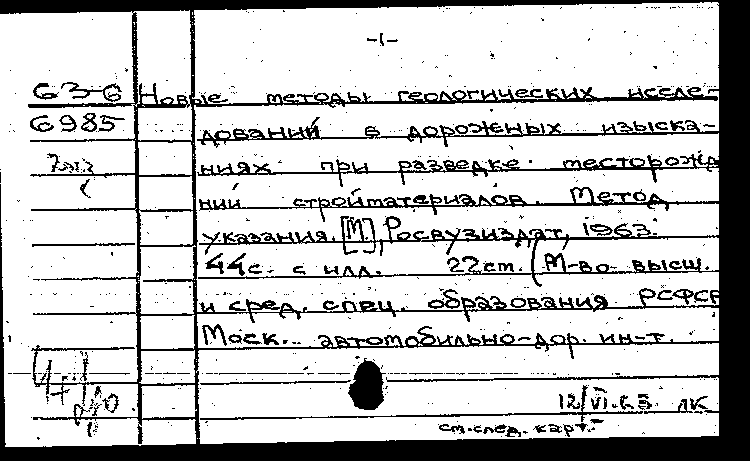 -1-
63-6 Новые методы геологических иссле-
6985 дований в дорожных изыска-
ниях при разведке месторожд
ний стройматериалов. Метод
указания. [М], Росвузиздат, 1963.
44с. с илл. 22см. (М-во высш.
и сред. спец. образования РСФСР
Моск. автомобильно-дор. ин-т.
12/VI.63. ЛК
см.след. карт.